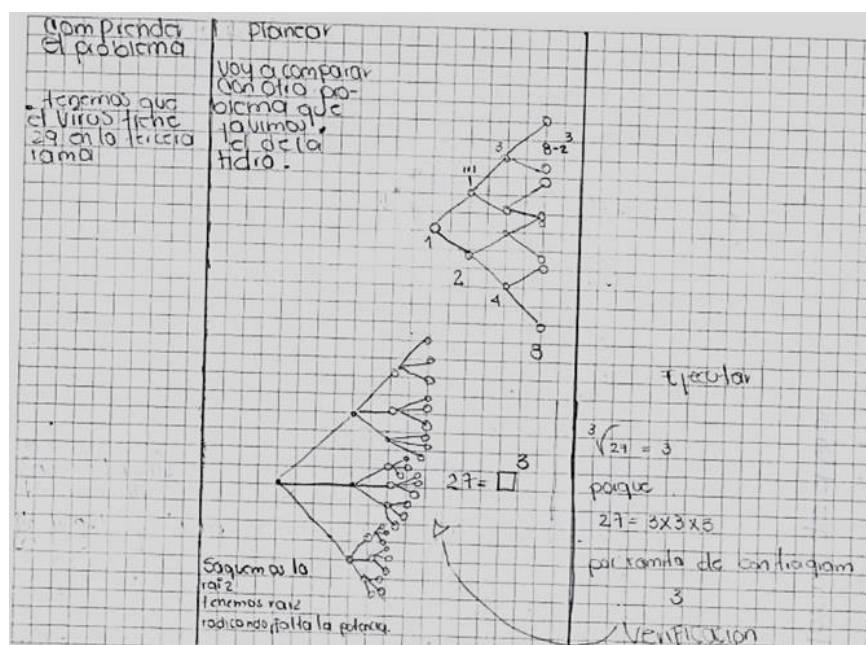 comprender
el problema
. tenemos que
el virus tiene
29 en la tercera
rama
Planear
voy a comparar
con otro pro-
blema que
el de la
hidra.
3
8-2³
1
2
4
8
27 = □³
Saquemos la
raíz
tenemos raíz
radicando, falta la potencia.
Ejecutar
³√27 = 3
porque
27 = 3x3x3
por ramita de
3
Verificación